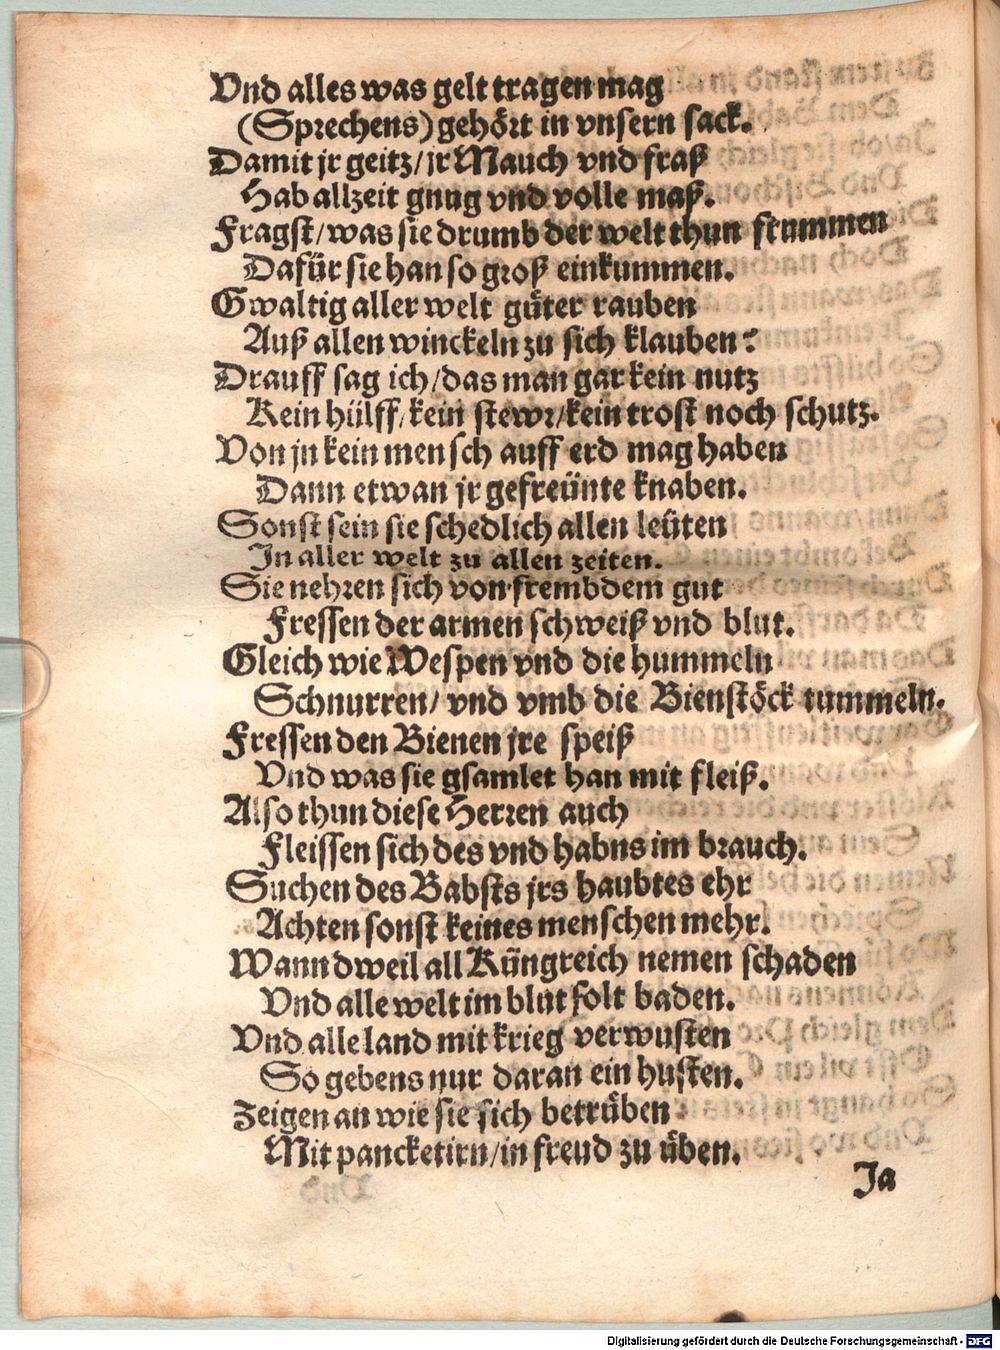 Vnd alles was gelt tragen mag
(Sprechens) gehört in vnsern sack.
Damit jr geitz/ jr Mauch vnd fraß
Hab allzeit gnug vnd volle maß.
Fragst/ was sie drumb der welt thun frummen
Dafür sie han so groß einkummen.
Gwaltig aller welt güter rauben
Auß allen winckeln zu sich klauben?
Drauff sag ich/ das man gar kein nutz
Kein hülff/ kein stewr/ kein trost noch schutz.
Von jn kein mensch auff erd mag haben
Dann etwan jr gefreünte knaben.
Sonst sein sie schedlich allen leüten
In aller welt zu allen zeiten.
Sie nehren sich von frembdem gut
Fressen der armen schweiß vnd blut.
Gleich wie Wespen vnd die hummeln
Schnurren/ vnd vmb die Bienstöck tummeln.
Fressen den Bienen jre speiß
Vnd was sie gsamlet han mit fleiß.
Also thun diese Herren auch
Fleissen sich des vnd habns im brauch.
Suchen des Babsts jrs haubtes ehr
Achten sonst keines menschen mehr.
Wann dweil all Küngreich nemen schaden
Vnd alle welt im blut solt baden.
Vnd alle land mit krieg verwusten
So gebens nur daran ein husten.
Zeigen an wie sie sich betrüben
Mit pancketirn/ in freud zu üben.
Ja
Digitalisierung gefördert durch die Deutsche Forschungsgemeinschaft - DFG